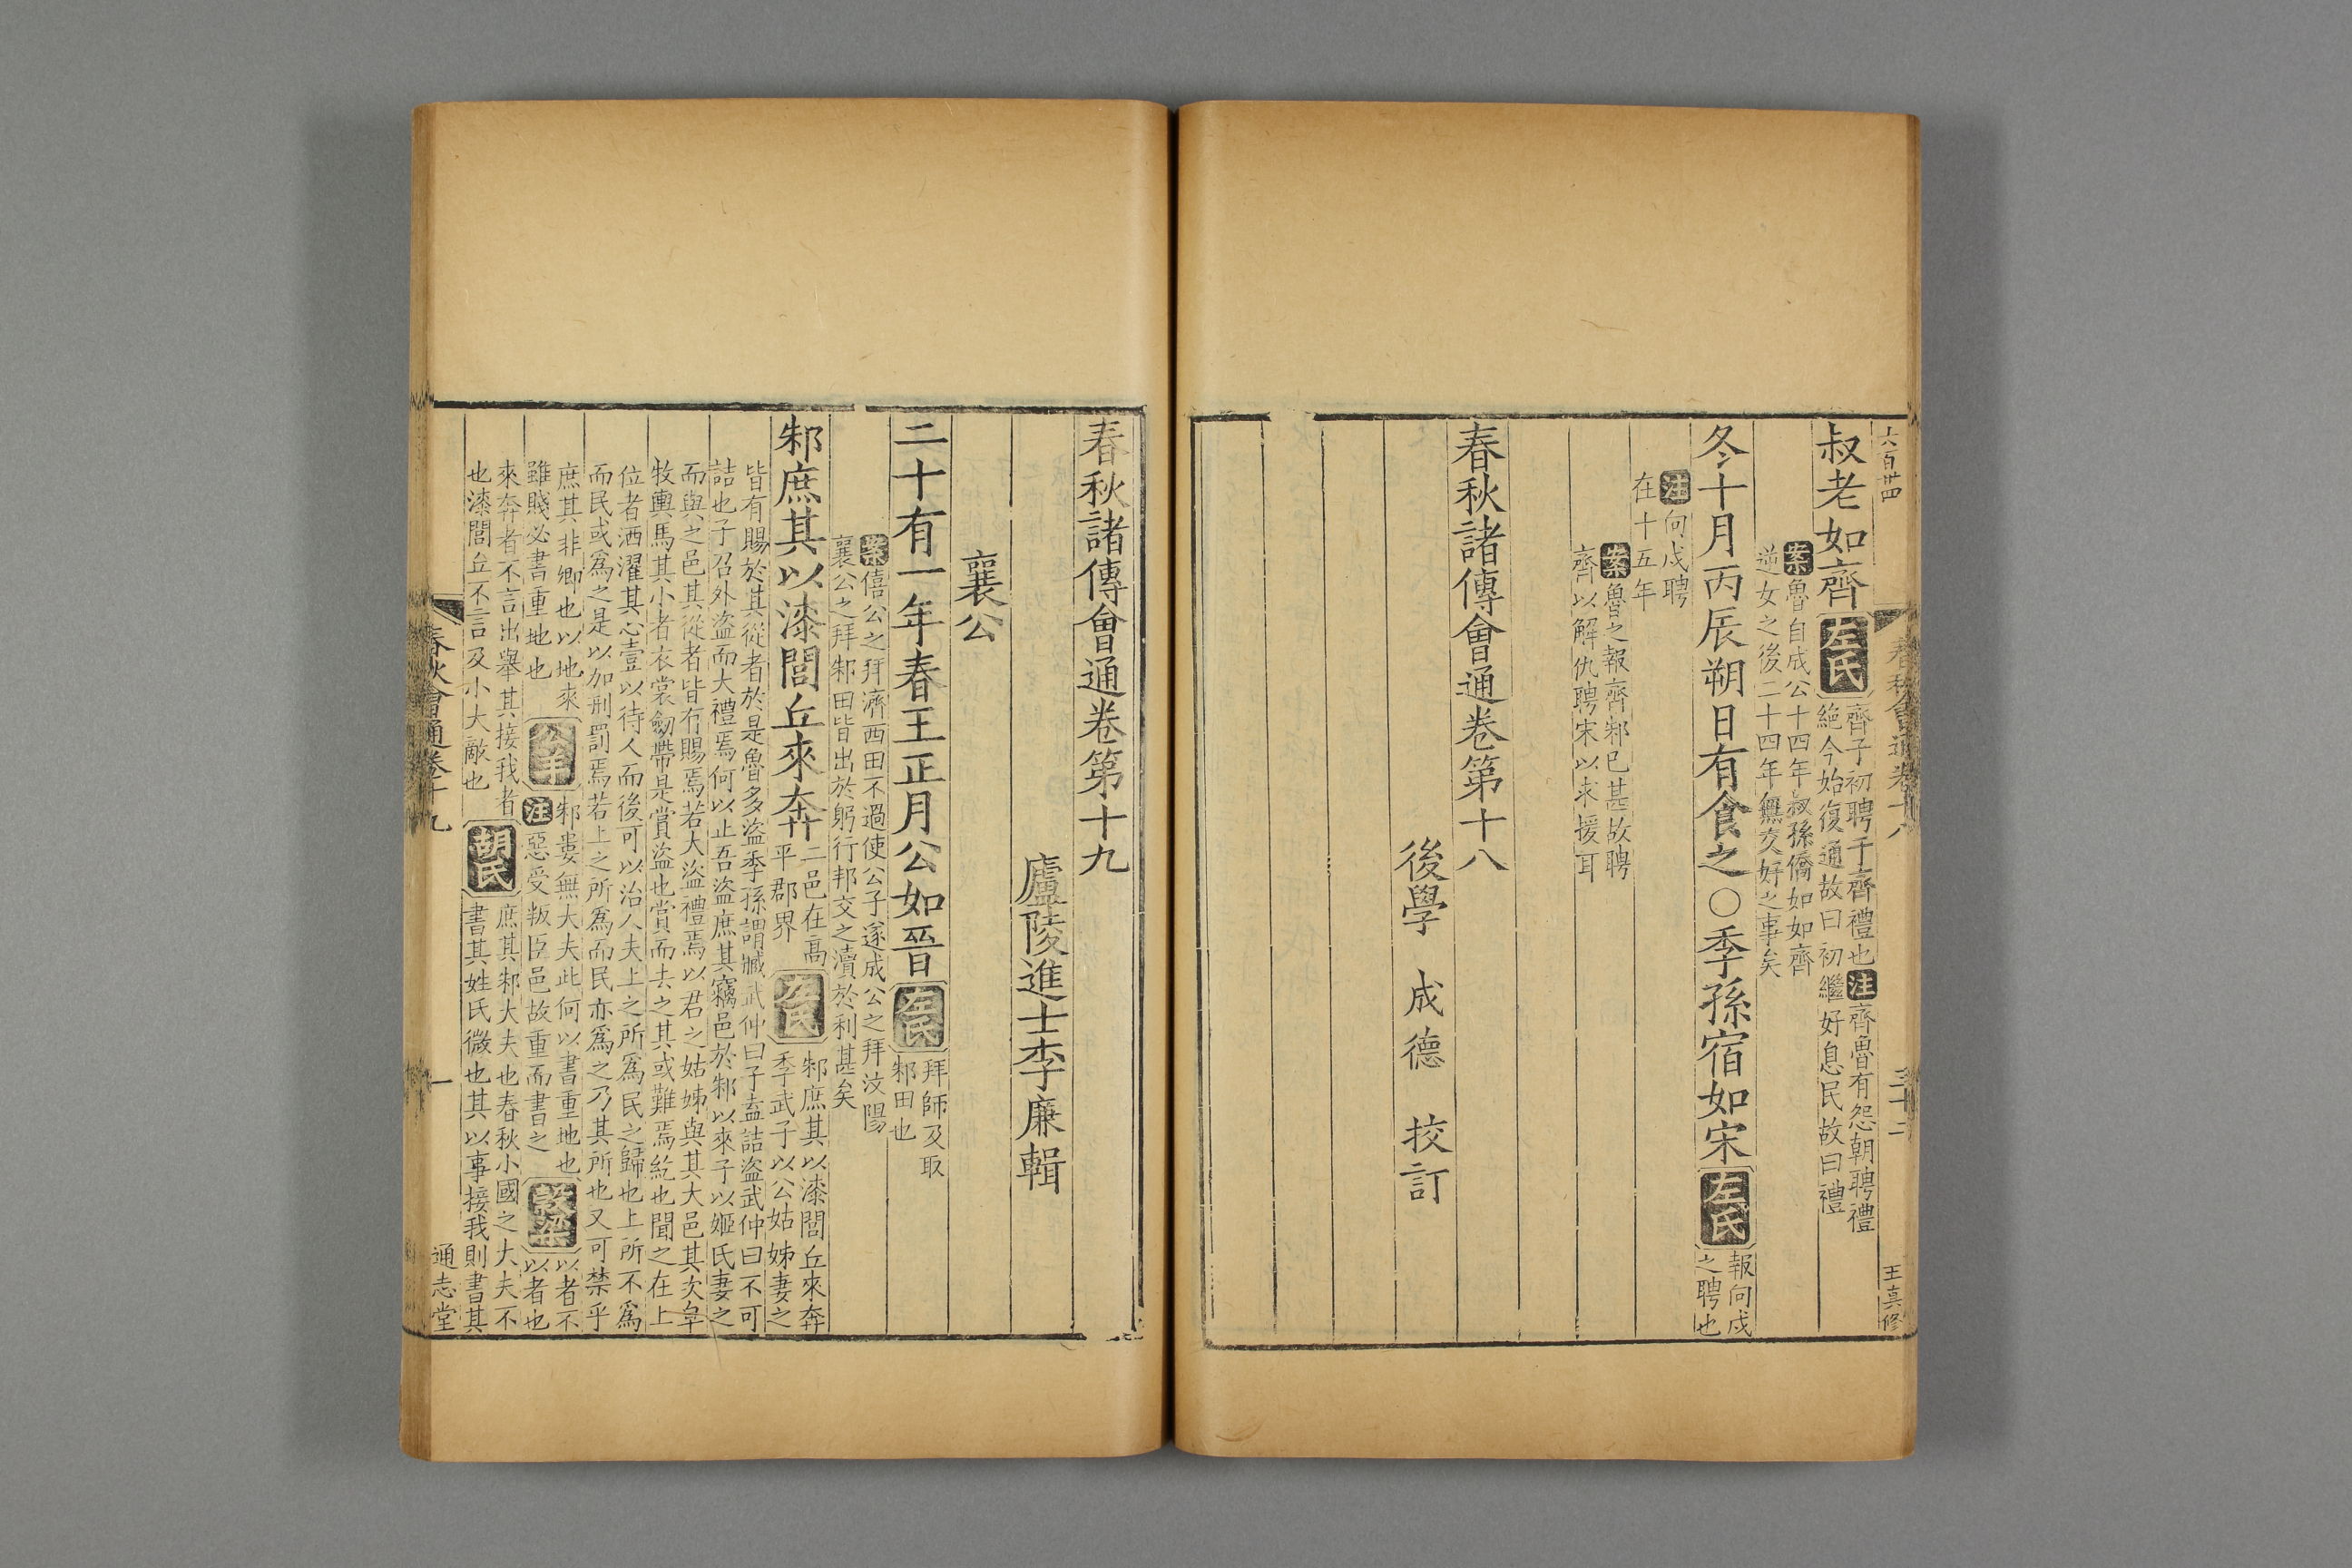 六百卅四
春秋會通卷十八
三十二
王真修
叔老如齊左氏齊子初聘于齊禮也注齊魯有怨朝聘禮
絶今始復通故曰初繼好息民故曰禮
案魯自成公十四年叔孫僑如如齊
逆女之後二十四年無交好之事矣
冬十月丙辰朔日有食之○季孫宿如宋左氏報向戌
之聘也
注向戌聘
在十五年
案魯之報齊邾已甚故聘
齊以解仇聘宋以求援耳
春秋諸傳會通卷第十八
後學 成德 挍訂
春秋諸傳會通卷第十九
廬陵進士李廉輯
襄公
二十有一年春王正月公如晉左氏拜師及取
邾田也
案僖公之拜濟西田不過使公子遂成公之拜汶陽
襄公之拜邾田皆出於躬行邦交之瀆於利甚矣
邾庶其以漆閭丘來奔二邑在高
平郡界
左氏邾庶其以漆閭丘來奔
季武子以公姑姊妻之
皆有賜於其從者於是魯多盜季孫謂臧武仲曰子盍詰盜武仲曰不可
詰也子召外盜而大禮焉何以止吾盜庶其竊邑於邾以來子以姬氏妻之
而與之邑其從者皆有賜焉若大盜禮焉以君之姑姊與其大邑其次皁
牧輿馬其小者衣裳劒帶是賞盜也賞而去之其或難焉紇也聞之在上
位者洒濯其心壹以待人而後可以治人夫上之所爲民之歸也上所不爲
而民或爲之是以加刑罰焉若上之所爲而民亦爲之乃其所也又可禁乎
庶其非卿也以地來
雖賤必書重地也
公羊邾婁無大夫此何以書重地也
注惡受叛臣邑故重而書之
穀梁以者不
以者也
來奔者不言出舉其接我者
也漆閭丘不言及小大敵也
胡氏庶其邾大夫也春秋小國之大夫不
書其姓氏微也其以事接我則書其
春秋會通卷十九
一
通志堂